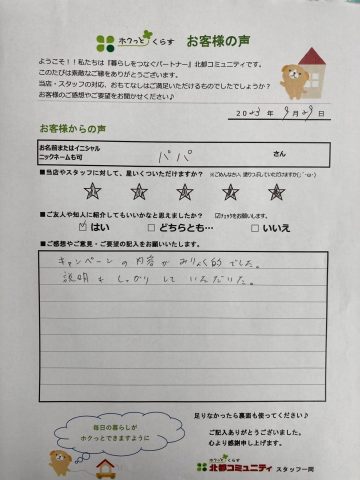 ホクっと くらす お客様の声
ようこそ!!私たちは『暮らしをつなぐパートナー』北都コミュニティです。
このたびは素敵なご縁をありがとうございます。
当店・スタッフの対応、おもてなしはご満足いただけるものでしたでしょうか?
お客様のご感想やご要望をお聞かせください♪
2023年 9月29日
お客様からの声
お名前またはイニシャル
ニックネームも可
パパ さん
■当店やスタッフに対して、星いくついただけますか?※ごめんなさい、塗りつぶしていただけますか(;´･ω･)
☆ ☆ ☆ ☆ ☆
■ご友人や知人に紹介してもいいかなと思えましたか? ☑チェックをお願いします。
☑ はい □ どちらとも… □ いいえ
■ご感想やご意見・ご要望の記入をお願いいたします。
キャンペーンの内容がみりょく的でした。
説明もしっかりしていただいた。
足りなかったら裏面も使ってください♪
毎日の暮らしが
ホクっとできますように
ご記入ありがとうございました。
心より感謝申し上げます。
ホクっと くらす
北都コミュニティ スタッフ一同